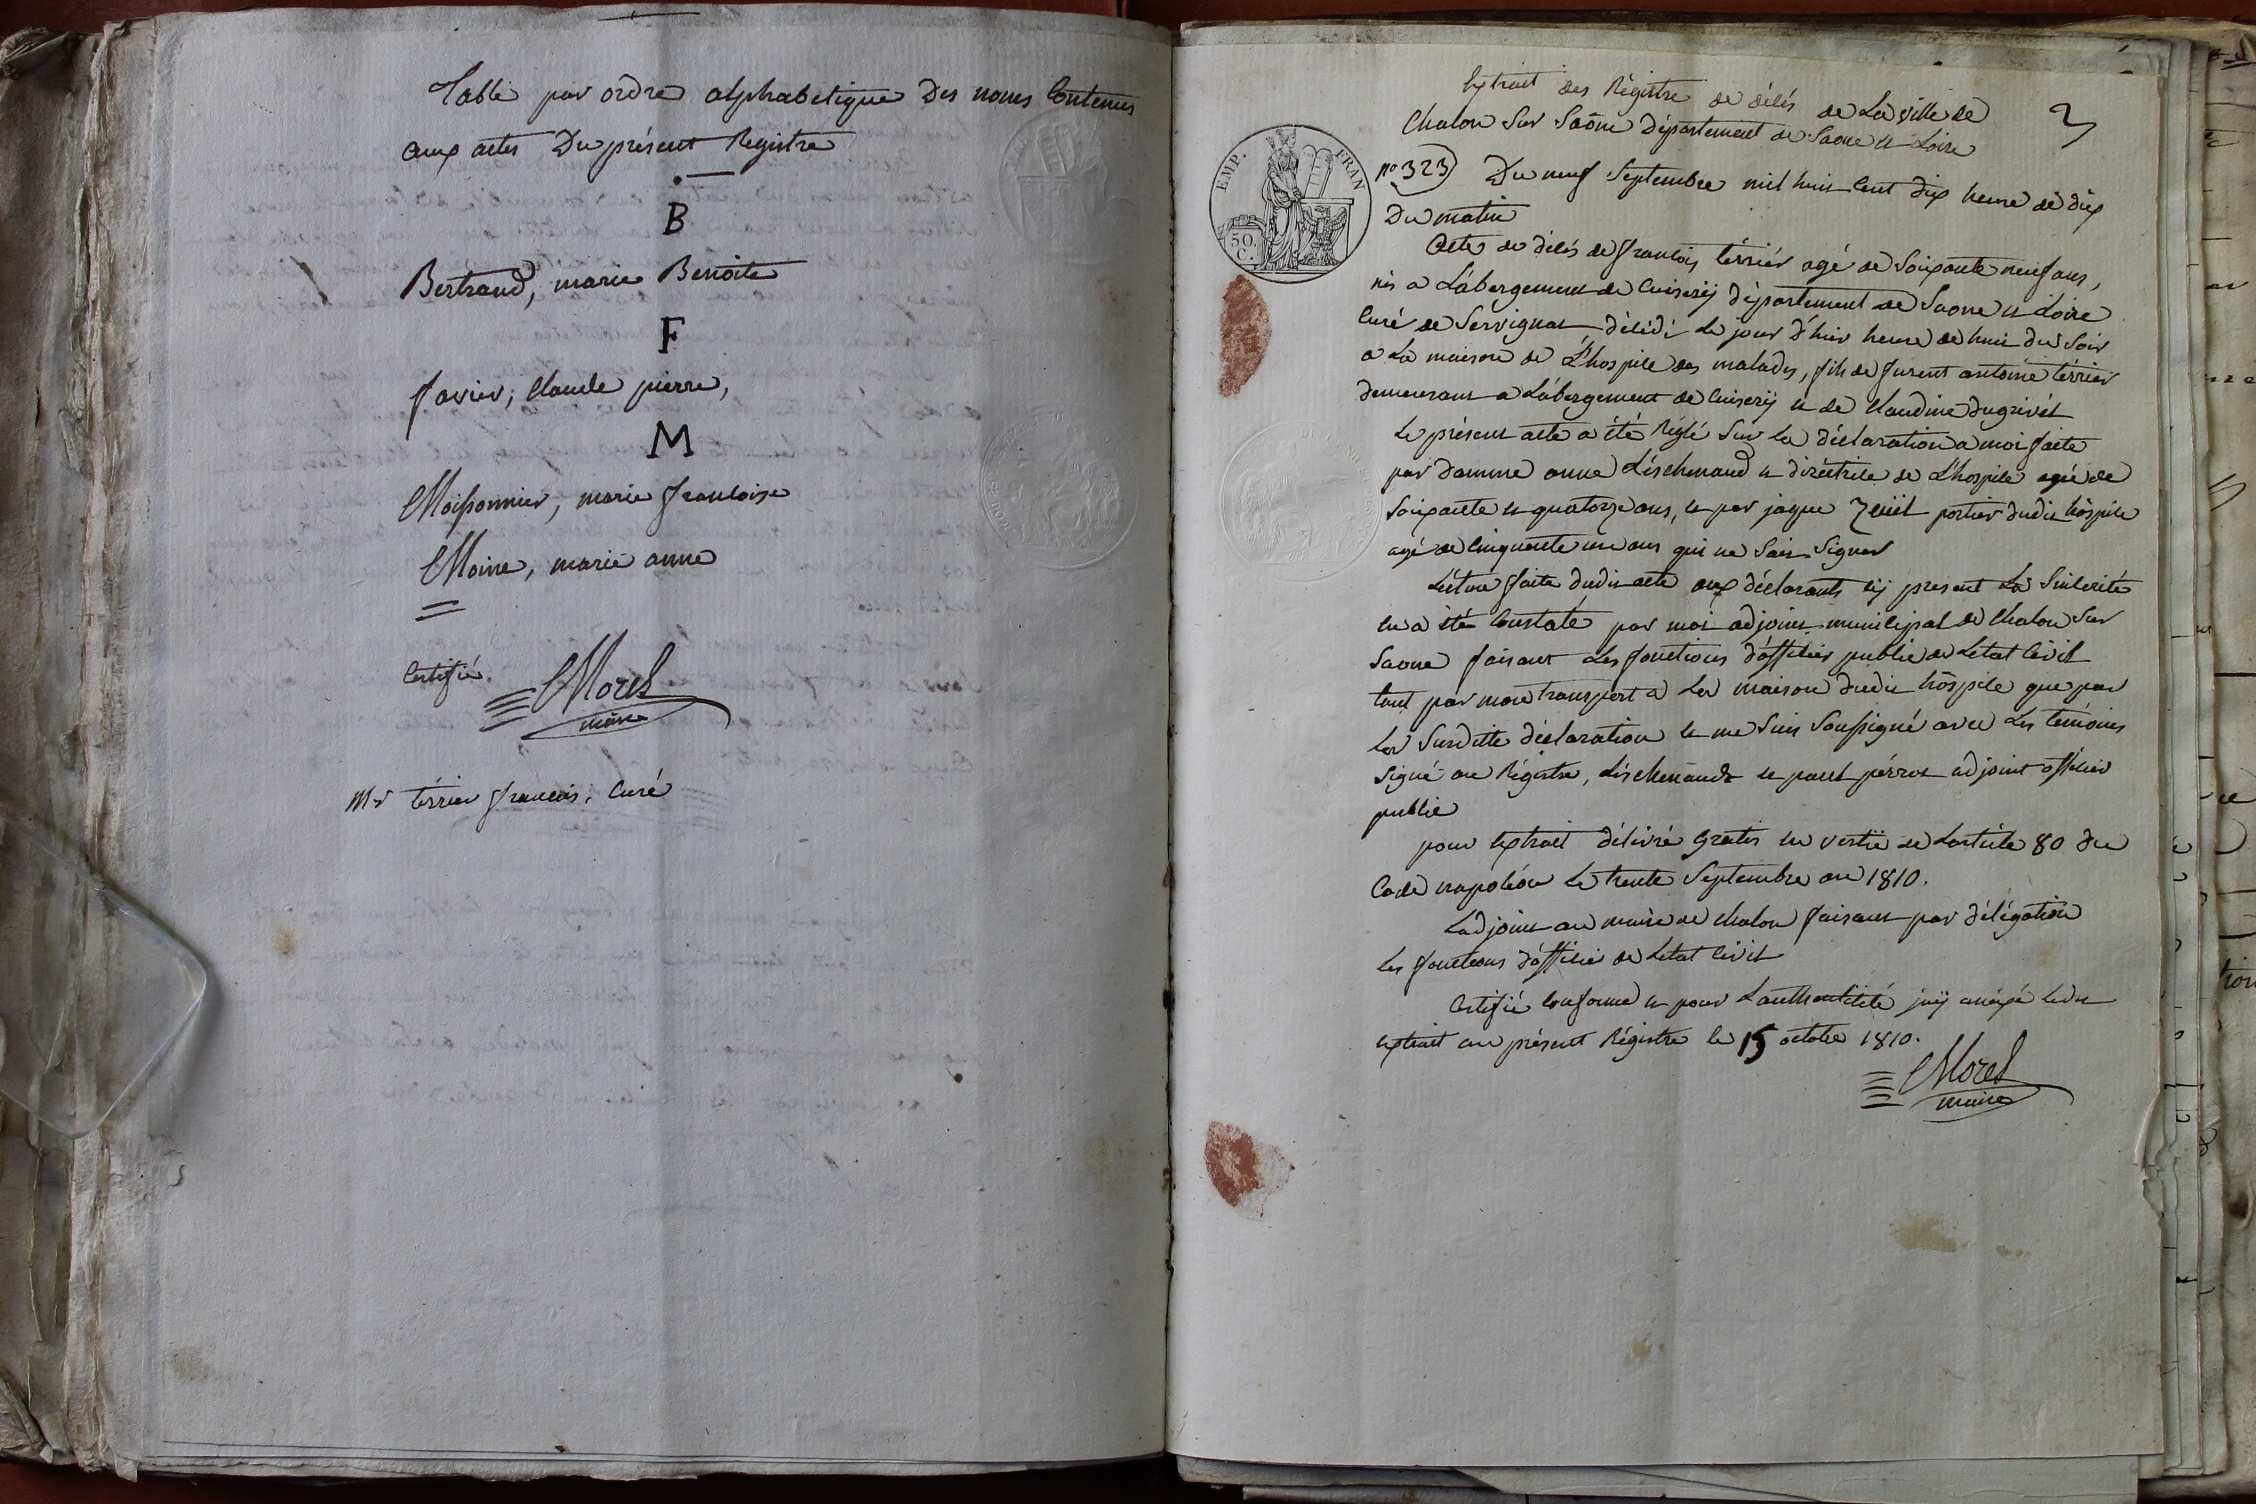 Table par ordre alphabetique Des noms Contenus
aux actes Du présent Registre
B
Bertrand, marie Benoite
F
favier, claude pierre,
M
Moissonnier, marie francoise
Moine, marie anne
Certifié.
Morel
maire
Mr térrier francois, Curé
Extrait des Régistre de décés de La ville de
Chalon Sur Saône Département de Saone et Loire
EMP. FRAN
50 C.
no 323 Du neuf Septembre mil huit Cent dix heure de dix
Du matin
Acte de décés de francois térriér agé de Soixante neuf ans,
nés a L'abergement de Cuiserÿ département de Saone et Loire
Curé de Servignat décédé Le jour d'hier heure de huit du Soir
a La maison de L'hospice des malades, fils de furent antoine térrier
demeurant a L'abergement de Cuiserÿ et de Claudine dugrivét
Le présent acte a été Réglé Sur La déclaration a moi faite
par damme anne Léschenaud directrice de L'hospice agée de
Soixante et quatorze ans, et par jaque portier dudit hôspice
agé de Cinquante un ans qui ne Sait Signer
Lécture faite dudit acte aux déclarants cÿ present La Sincerité
en a été Constate par moi adjoint municipal de Chalon Sur
Saone faisant Les fonctions d'officier public de L'etat Civil
tant par mon transport a La maison dudit hôspice que par
La Susditte déclaration et me Suis Soussigné avec Les temoins
Signé au Régistre, Léschenaude et paul pérrot adjoint officier
public
pour Extrait délivré Gratis en vertu de L'article 80 du
Code napoléon Le trente Septembre an 1810.
L'adjoint au maire de chalon faisant par délégation
les fonctions d'officié de L'etat Civil
Certifié Conforme et pour L'authenticité jaÿ anéxé Ledit
Extrait au présent Régistre le 15 octobre 1810.
Morel
maire